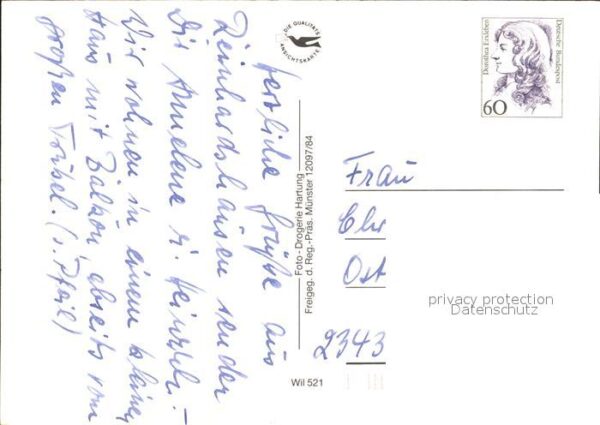 Herzliche Grüße aus
Reinhardshausen sendet
Dir Annelene u. Heinzhi. -
Wir wohnen in einem kleinen
Haus mit Balkon, abseits vom
großen Trubel. (s. Pfeil)
DIE QUALITÄTS
ANSICHTSKARTE
Foto - Drogerie Hartung
Freigeg. d. Reg.-Präs. Münster 12097/84
Wil 521
Dorothea Erxleben
Deutsche Bundespost
60
Frau
Chr
Ost
2343
privacy protection
Datenschutz